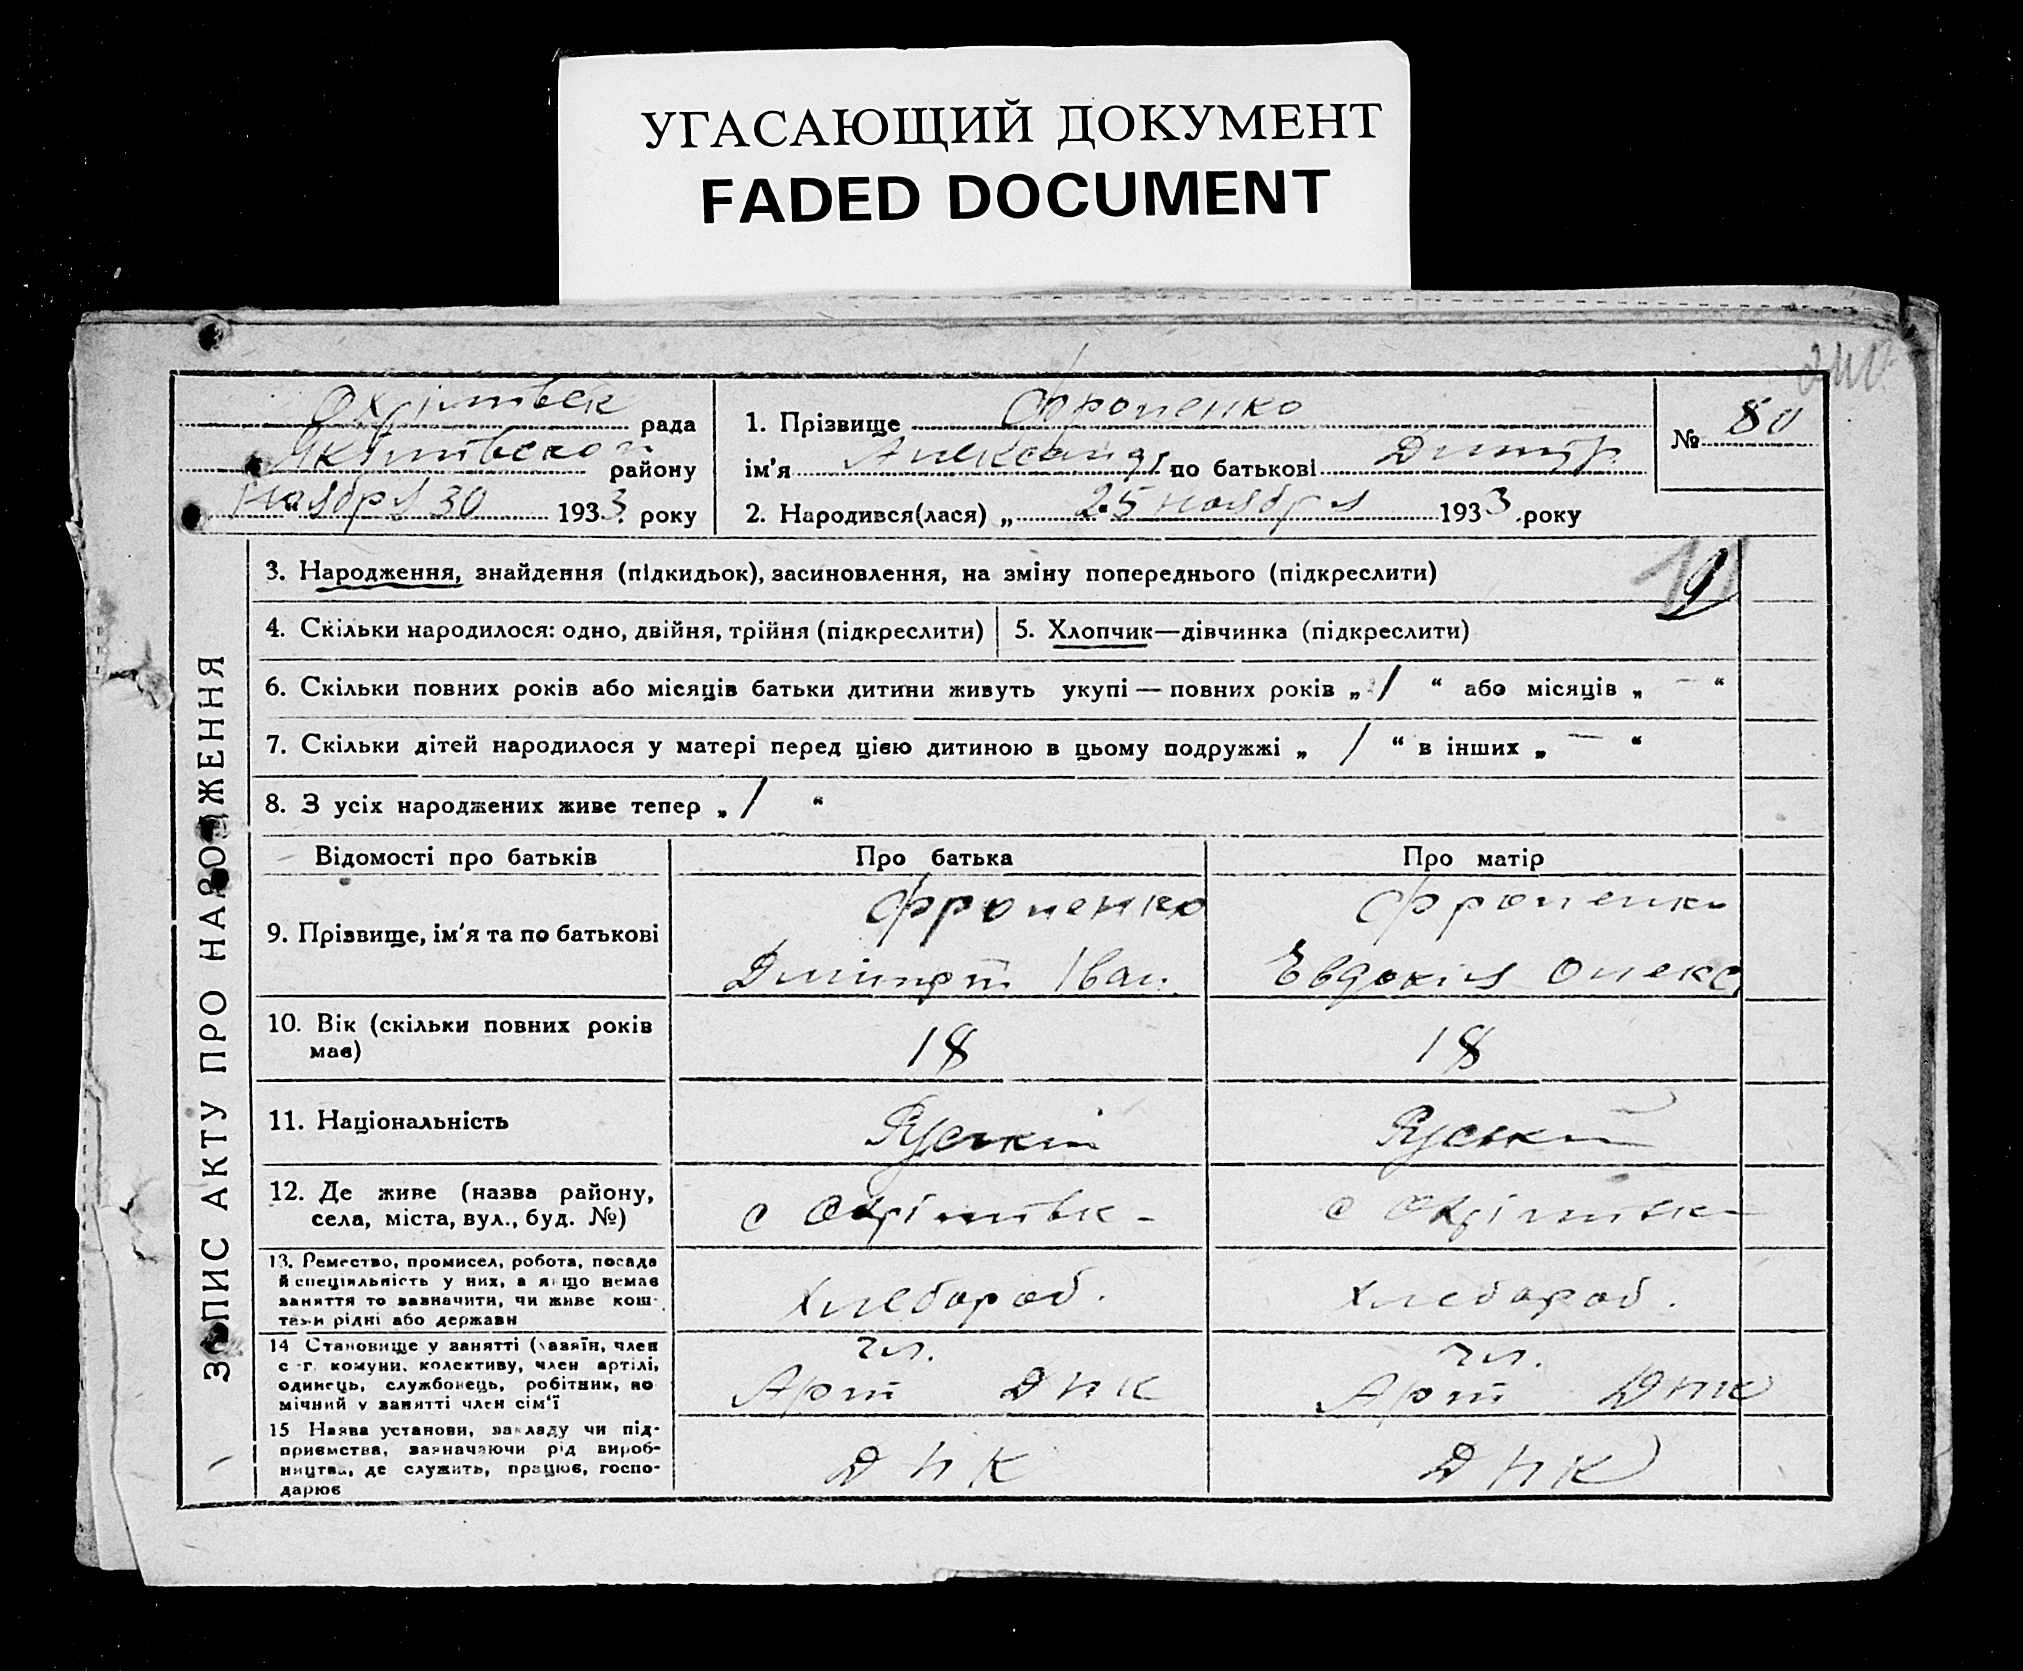 УГАСАЮЩИЙ ДОКУМЕНТ
FADED DOCUMENT
Охрімівск рада
Якимівского району
Ноября 30 1933 року
1. Прізвище Фроленко
ім'я Александр по батькові Дмитр.
2. Народився(лася) „ 25 ноября 1933 року
№ 80
ЗАПИС АКТУ ПРО НАРОДЖЕННЯ
3. Народження, знайдення (підкидьок), засиновлення, на зміну попереднього (підкреслити)
4. Скільки народилося: одно, двійня, трійня (підкреслити)
5. Хлопчик—дівчинка (підкреслити)
6. Скільки повних років або місяців батьки дитини живуть укупі — повних років „ 1 “ або місяців „ — “
7. Скільки дітей народилося у матері перед цією дитиною в цьому подружжі „ 1 “ в інших „ — “
8. З усіх народжених живе тепер „ 1 “
Відомості про батьків Про батька Про матір
9. Прізвище, ім'я та по батькові
Фроленко
Дмитрій Іван.
Фроленко
Евдокія Олекс
10. Вік (скільки повних років має)
18
18
11. Національність
Руский
Руский
12. Де живе (назва району,
села, міста, вул., буд. №)
с Охрімівк-
с Охрімівк-
13. Ремество, промисел, робота, посада
й спеціяльність у них, а якщо немає
заняття то зазначити, чи живе кош-
тами рідні або держави
Хлебороб.
Хлебороб.
14 Становище у занятті (хазяїн, член
с-г. комуни, колективу, член артілі,
одинець, службовець, робітник, по
мічний у занятті член сім'ї
чл.
Арт ДНК
чл.
Арт ДНК
15 Назва установи, закладу чи під-
приємства, зазначаючи рід вироб-
ництва, де служить, працює, госпо-
дарює
ДНК
ДНК